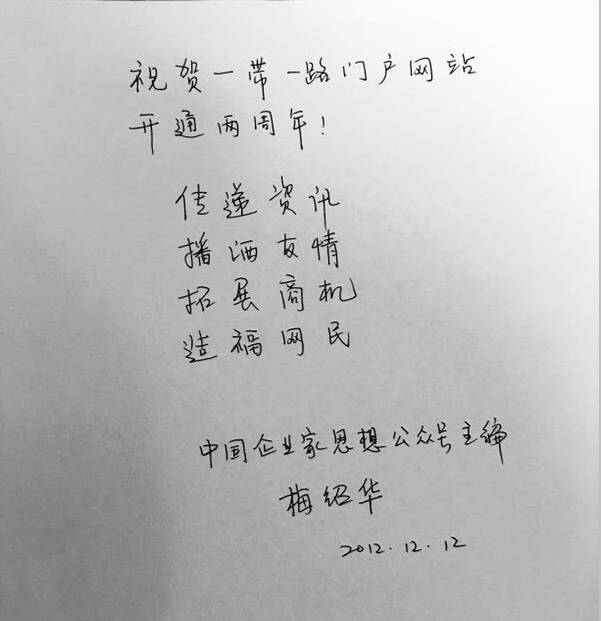 祝贺一带一路门户网站
开通两周年!
传递资讯
播洒友情
拓展商机
造福网民
中国企业家思想公众号主编
梅绍华
2012.12.12